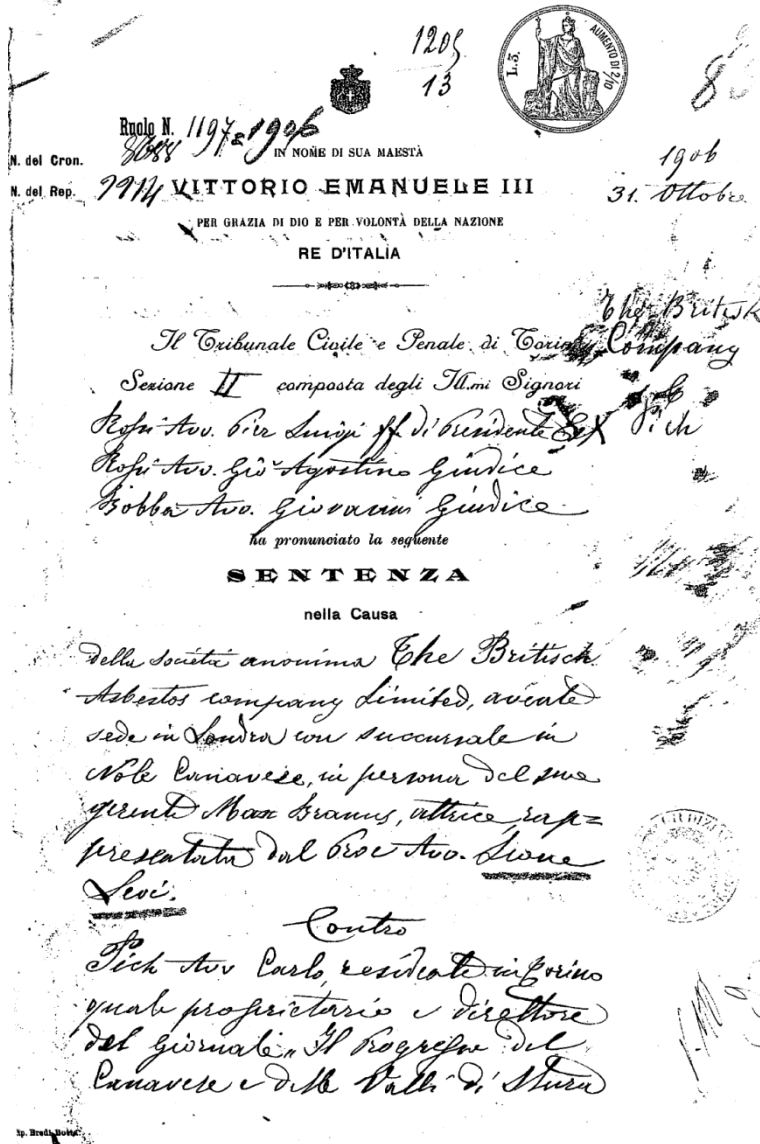 1205
13
L. 3.
AUMENTO DI 2/10
8
Ruolo N. 1197 1906
N. del Cron. 8688
IN NOME DI SUA MAESTÀ
1906
N. del Rep. 2914 VITTORIO EMANUELE III
31. Ottobre
PER GRAZIA DI DIO E PER VOLONTÀ DELLA NAZIONE
RE D'ITALIA
The Britisk
Il Tribunale Civile e Penale di Torino
Company
Sezione II composta degli Ill.mi Signori
Rossi Avv. Pier Luigi ff. di Presidente
Pich
Rossi Avv. Gio Agostino Giudice
Bobba Avv. Giovanni Giudice
ha pronunciato la seguente
SENTENZA
nella Causa
della società anonima The Britisch
Asbestos company Limited, avente
sede in Londra con succursale in
Nole Canavese, in persona del suo
gerente Max Brauns, attrice, rap=
presentata dal Proc Avv. Leone
Levi.
Contro
Pich Avv Carlo, residente in Torino
quale proprietario e direttore
del giornale „Il Progresso del
Canavese e delle Valli di Stura